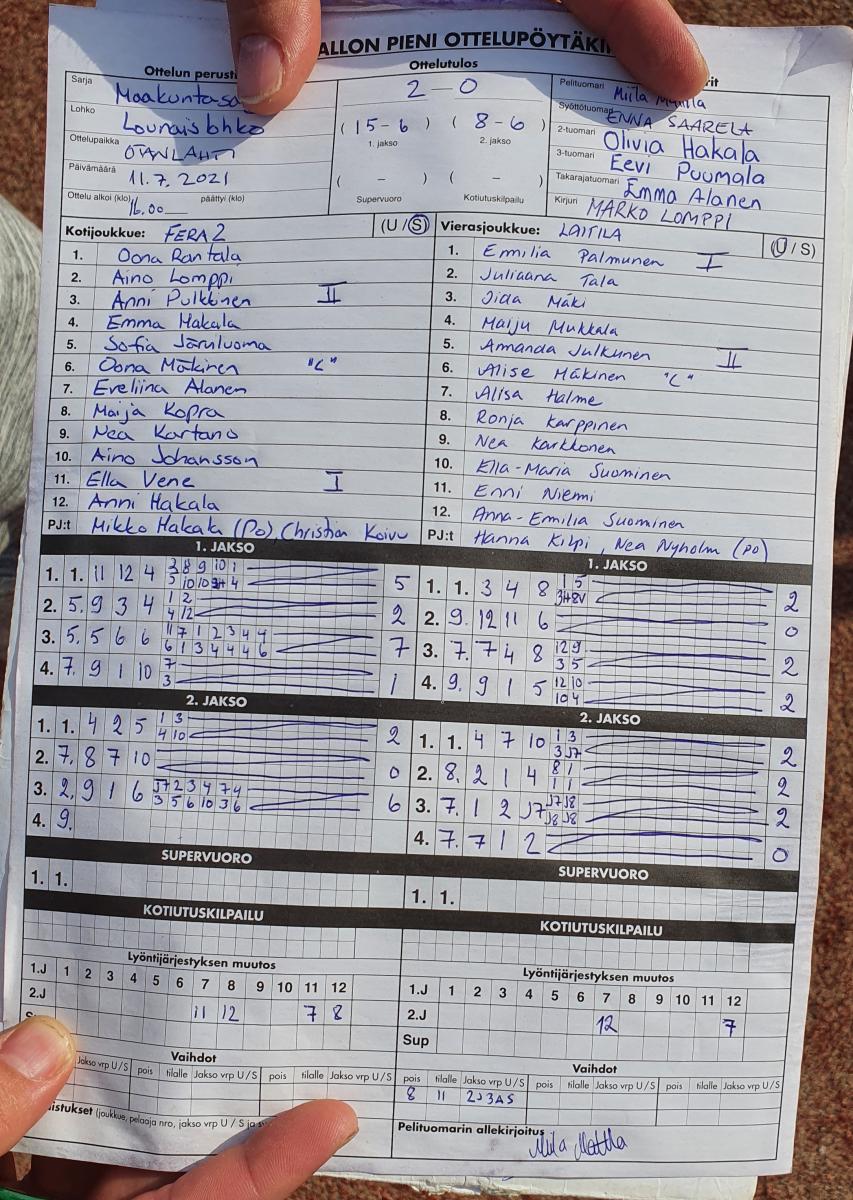 ALLON PIENI OTTELUPÖYTÄKI
Ottelun perust
Sarja
Maakuntasa
Lohko
Lounaislohko
Ottelupaikka
OTANLAHTI
Päivämäärä
11.7.2021
Ottelu alkoi (klo) 16.00 päättyi (klo)
Ottelutulos
2 - 0
(15-6) (8-6)
1. jakso 2. jakso
( - ) ( - )
Supervuoro Kotiutuskilpailu
rit
Pelituomari Miila
Syöttötuomari ENNA SAARELA
2-tuomari Olivia Hakala
3-tuomari Eevi Puumala
Takarajatuomari Emma Alanen
Kirjuri MARKO LOMPPI
Kotijoukkue: FERA 2 (U / S)
1. Oona Rantala
2. Aino Lomppi
3. Anni Pulkkinen II
4. Emma Hakala
5. Sofia Järviluoma
6. Oona Mäkinen "C"
7. Eveliina Alanen
8. Maija Kopra
9. Nea Kartano
10. Aino Johansson
11. Ella Vene I
12. Anni Hakala
PJ:t Mikko Hakala (PO), Christian Koivu
Vierasjoukkue: LAITILA (U / S)
1. Emilia Palmunen I
2. Juliaana Tala
3. Iida Mäki
4. Maiju Mukkala
5. Amanda Julkunen II
6. Alise Mäkinen "C"
7. Alisa Halme
8. Ronja Karppinen
9. Nea Karkkonen
10. Ella-Maria Suominen
11. Enni Niemi
12. Anna-Emilia Suominen
PJ:t Hanna Kilpi, Nea Nyholm (PO)
1. JAKSO
1. 1. 11 12 4 3 8 9 10 1 5
5 10 10 3H 4
2. 5. 9 3 4 1 2 2
4 12
3. 5. 5 6 6 11 7 1 2 3 4 4 7
6 1 3 4 4 4 6
4. 7. 9 1 10 7 1
3
2. JAKSO
1. 1. 4 2 5 1 3 2
4 10
2. 7. 8 7 10 0
3. 2. 9 1 6 J7 2 3 4 7 4 6
3 5 6 10 3 6
4. 9.
SUPERVUORO
1. 1.
KOTIUTUSKILPAILU
1. JAKSO
1. 1. 3 4 8 1 5 2
3H 8V
2. 9. 12 11 6 0
3. 7. 7 4 8 12 9 2
3 5
4. 9. 9 1 5 12 10 2
10 4
2. JAKSO
1. 1. 4 7 10 1 3 2
3 J7
2. 8. 2 1 4 8 1 2
1 1
3. 7. 1 2 J7 J7 J8 2
J8 J8
4. 7. 7 1 2 0
SUPERVUORO
1. 1.
KOTIUTUSKILPAILU
Lyöntijärjestyksen muutos
1.J 1 2 3 4 5 6 7 8 9 10 11 12
2.J 11 12 7 8
Vaihdot
Jakso vrp U / S pois tilalle Jakso vrp U / S pois tilalle Jakso vrp U / S
istukset (joukkue, pelaaja nro, jakso vrp U / S ja s
Lyöntijärjestyksen muutos
1.J 1 2 3 4 5 6 7 8 9 10 11 12
2.J 12 7
Sup
Vaihdot
pois tilalle Jakso vrp U / S pois tilalle Jakso vrp U / S pois tilalle Jakso vrp U / S
8 11 2J3AS
Pelituomarin allekirjoitus